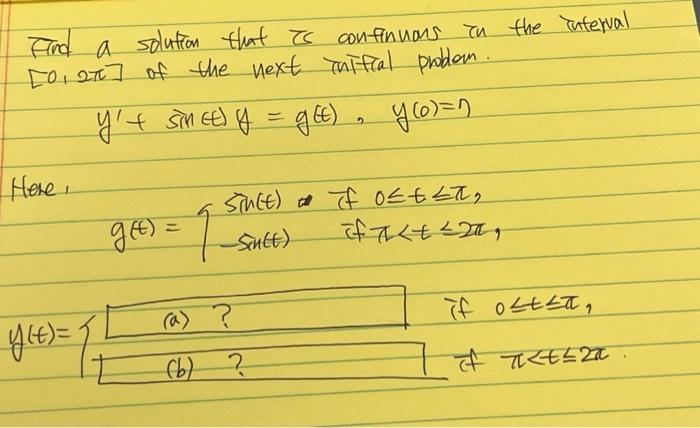 Find a solution that is continuous in the interval
[0, 2π] of the next initial problem.
y' + sin(t) y = g(t), y(0)=7
Here,
g(t) = { sin(t) if 0≤t≤π,
-sin(t) if π<t≤2π,
y(t)= { (a) ? if 0≤t≤π,
(b) ? if π<t≤2π.